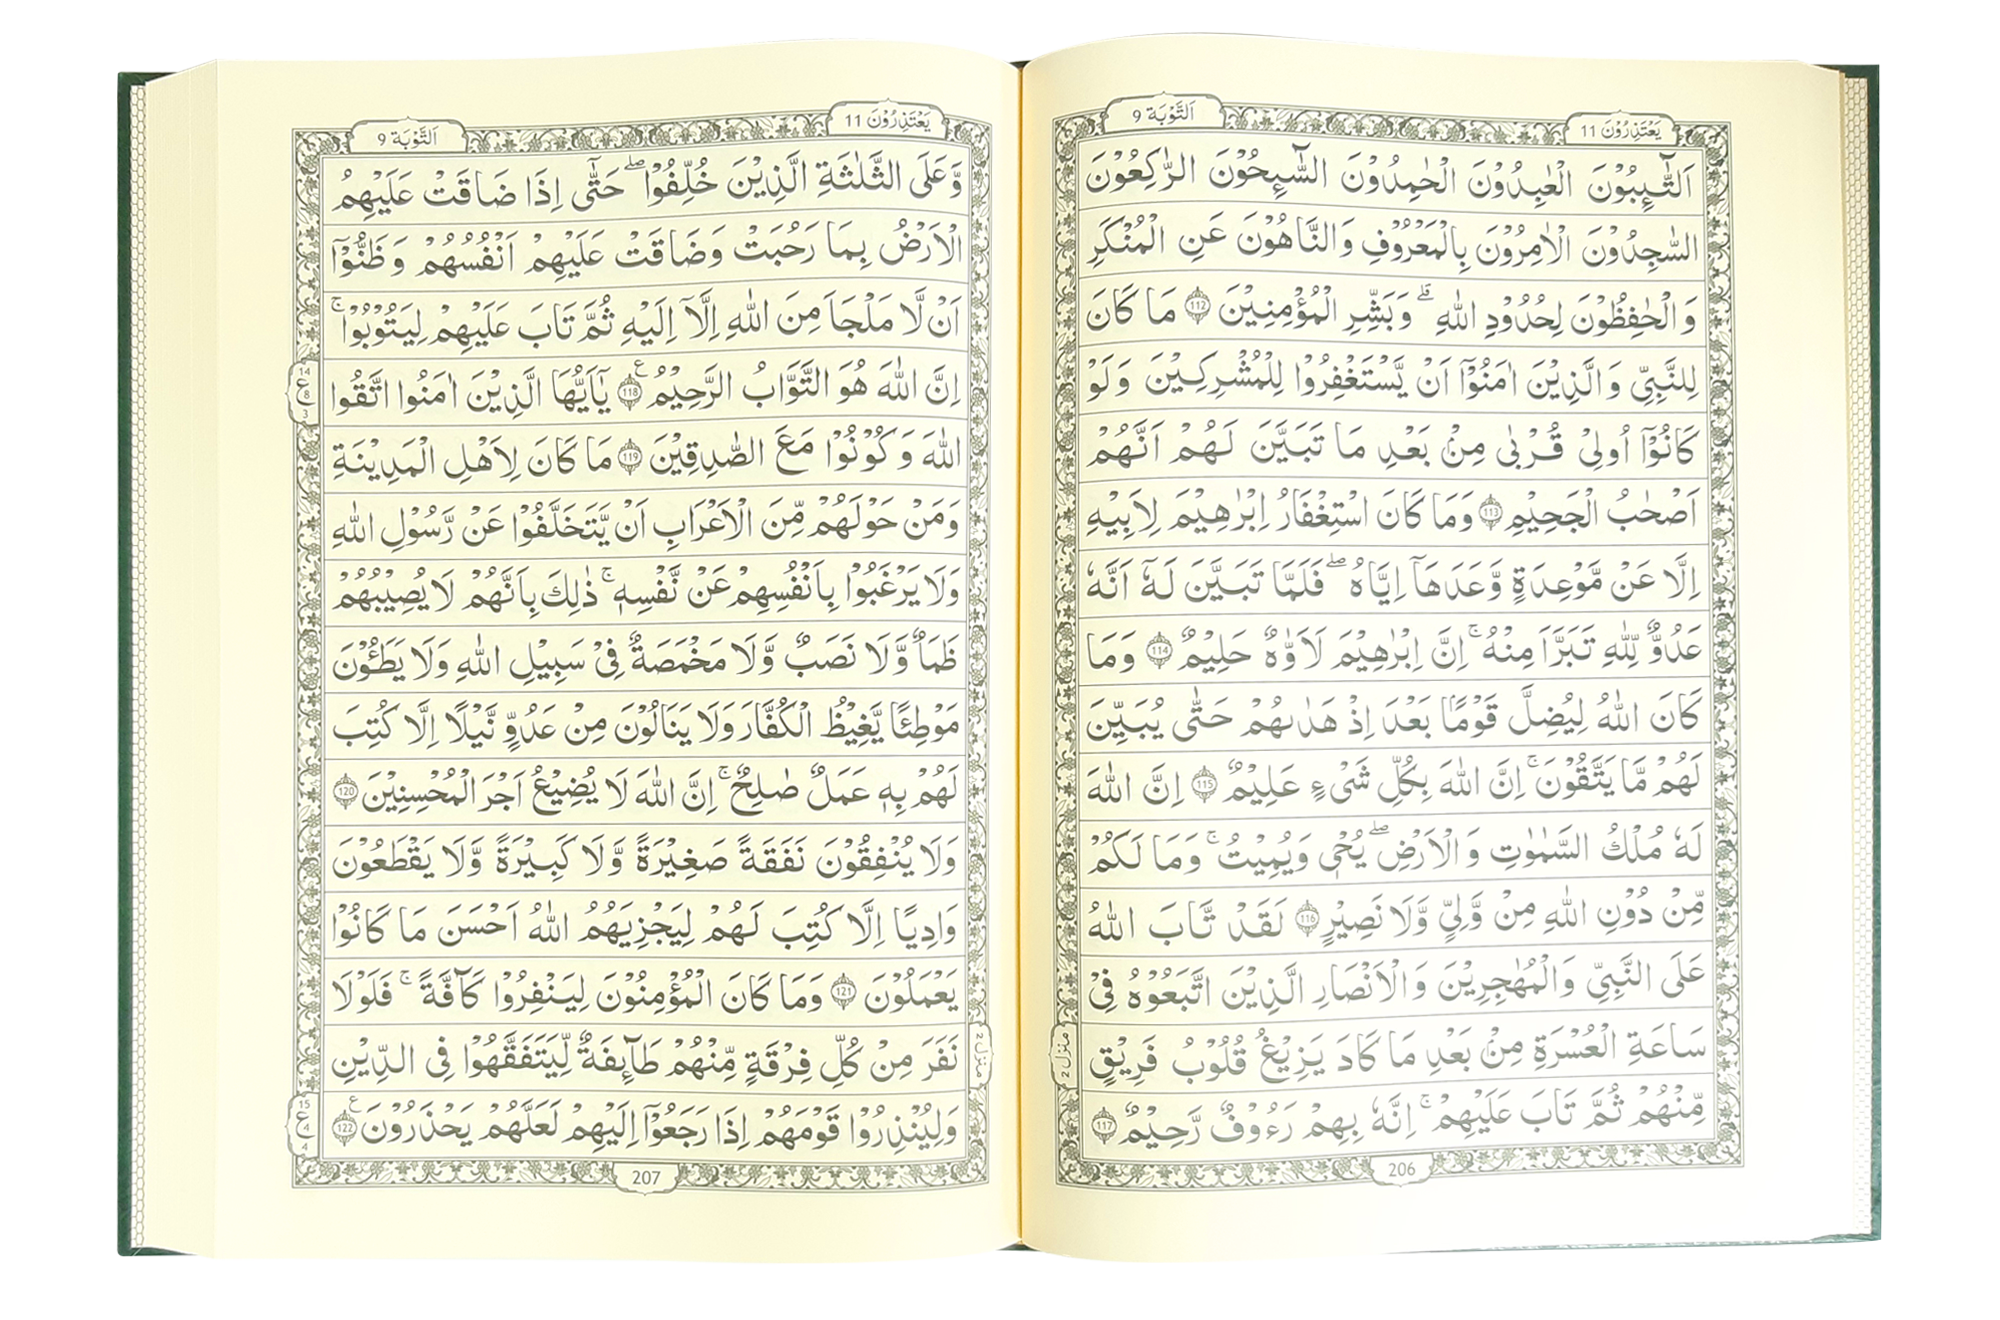 يَعْتَذِرُوْنَ 11
اَلتَّوْبَة 9
اَلتَّآئِبُوْنَ الْعٰبِدُوْنَ الْحٰمِدُوْنَ السَّآئِحُوْنَ الرّٰكِعُوْنَ
السّٰجِدُوْنَ الْاٰمِرُوْنَ بِالْمَعْرُوْفِ وَالنَّاهُوْنَ عَنِ الْمُنْكَرِ
وَالْحٰفِظُوْنَ لِحُدُوْدِ اللّٰهِ ۗ وَبَشِّرِ الْمُؤْمِنِيْنَ 112 مَا كَانَ
لِلنَّبِيِّ وَالَّذِيْنَ اٰمَنُوْٓا اَنْ يَّسْتَغْفِرُوْا لِلْمُشْرِكِيْنَ وَلَوْ
كَانُوْٓا اُولِيْ قُرْبٰى مِنْۢ بَعْدِ مَا تَبَيَّنَ لَهُمْ اَنَّهُمْ
اَصْحٰبُ الْجَحِيْمِ 113 وَمَا كَانَ اسْتِغْفَارُ اِبْرٰهِيْمَ لِاَبِيْهِ
اِلَّا عَنْ مَّوْعِدَةٍ وَّعَدَهَآ اِيَّاهُ ۖ فَلَمَّا تَبَيَّنَ لَهٗٓ اَنَّهٗ
عَدُوٌّ لِّلّٰهِ تَبَرَّاَ مِنْهُ ۚ اِنَّ اِبْرٰهِيْمَ لَاَوَّاهٌ حَلِيْمٌ 114 وَمَا
كَانَ اللّٰهُ لِيُضِلَّ قَوْمًاۢ بَعْدَ اِذْ هَدٰىهُمْ حَتّٰى يُبَيِّنَ
لَهُمْ مَّا يَتَّقُوْنَ ۚ اِنَّ اللّٰهَ بِكُلِّ شَيْءٍ عَلِيْمٌ 115 اِنَّ اللّٰهَ
لَهٗ مُلْكُ السَّمٰوٰتِ وَالْاَرْضِ ۖ يُحْيٖ وَيُمِيْتُ ۚ وَمَا لَكُمْ
مِّنْ دُوْنِ اللّٰهِ مِنْ وَّلِيٍّ وَّلَا نَصِيْرٍ 116 لَقَدْ تَّابَ اللّٰهُ
عَلَى النَّبِيِّ وَالْمُهٰجِرِيْنَ وَالْاَنْصَارِ الَّذِيْنَ اتَّبَعُوْهُ فِيْ
سَاعَةِ الْعُسْرَةِ مِنْۢ بَعْدِ مَا كَادَ يَزِيْغُ قُلُوْبُ فَرِيْقٍ
مِّنْهُمْ ثُمَّ تَابَ عَلَيْهِمْ ۚ اِنَّهٗ بِهِمْ رَءُوْفٌ رَّحِيْمٌ 117
منزل 2
206
يَعْتَذِرُوْنَ 11
اَلتَّوْبَة 9
وَّعَلَى الثَّلٰثَةِ الَّذِيْنَ خُلِّفُوْا ۖ حَتّٰٓى اِذَا ضَاقَتْ عَلَيْهِمُ
الْاَرْضُ بِمَا رَحُبَتْ وَضَاقَتْ عَلَيْهِمْ اَنْفُسُهُمْ وَظَنُّوْٓا
اَنْ لَّا مَلْجَاَ مِنَ اللّٰهِ اِلَّآ اِلَيْهِ ثُمَّ تَابَ عَلَيْهِمْ لِيَتُوْبُوْا ۚ
اِنَّ اللّٰهَ هُوَ التَّوَّابُ الرَّحِيْمُ ع 118 يٰٓاَيُّهَا الَّذِيْنَ اٰمَنُوا اتَّقُوا
اللّٰهَ وَكُوْنُوْا مَعَ الصّٰدِقِيْنَ 119 مَا كَانَ لِاَهْلِ الْمَدِيْنَةِ
وَمَنْ حَوْلَهُمْ مِّنَ الْاَعْرَابِ اَنْ يَّتَخَلَّفُوْا عَنْ رَّسُوْلِ اللّٰهِ
وَلَا يَرْغَبُوْا بِاَنْفُسِهِمْ عَنْ نَّفْسِهٖ ۚ ذٰلِكَ بِاَنَّهُمْ لَا يُصِيْبُهُمْ
ظَمَاٌ وَّلَا نَصَبٌ وَّلَا مَخْمَصَةٌ فِيْ سَبِيْلِ اللّٰهِ وَلَا يَطَـُٔوْنَ
مَوْطِئًا يَّغِيْظُ الْكُفَّارَ وَلَا يَنَالُوْنَ مِنْ عَدُوٍّ نَّيْلًا اِلَّا كُتِبَ
لَهُمْ بِهٖ عَمَلٌ صَالِحٌ ۚ اِنَّ اللّٰهَ لَا يُضِيْعُ اَجْرَ الْمُحْسِنِيْنَ 120
وَلَا يُنْفِقُوْنَ نَفَقَةً صَغِيْرَةً وَّلَا كَبِيْرَةً وَّلَا يَقْطَعُوْنَ
وَادِيًا اِلَّا كُتِبَ لَهُمْ لِيَجْزِيَهُمُ اللّٰهُ اَحْسَنَ مَا كَانُوْا
يَعْمَلُوْنَ 121 وَمَا كَانَ الْمُؤْمِنُوْنَ لِيَنْفِرُوْا كَآفَّةً ۚ فَلَوْلَا
نَفَرَ مِنْ كُلِّ فِرْقَةٍ مِّنْهُمْ طَآئِفَةٌ لِّيَتَفَقَّهُوْا فِي الدِّيْنِ
وَلِيُنْذِرُوْا قَوْمَهُمْ اِذَا رَجَعُوْٓا اِلَيْهِمْ لَعَلَّهُمْ يَحْذَرُوْنَ ع 122
14
ع
8
3
15
ع
4
4
منزل 2
207